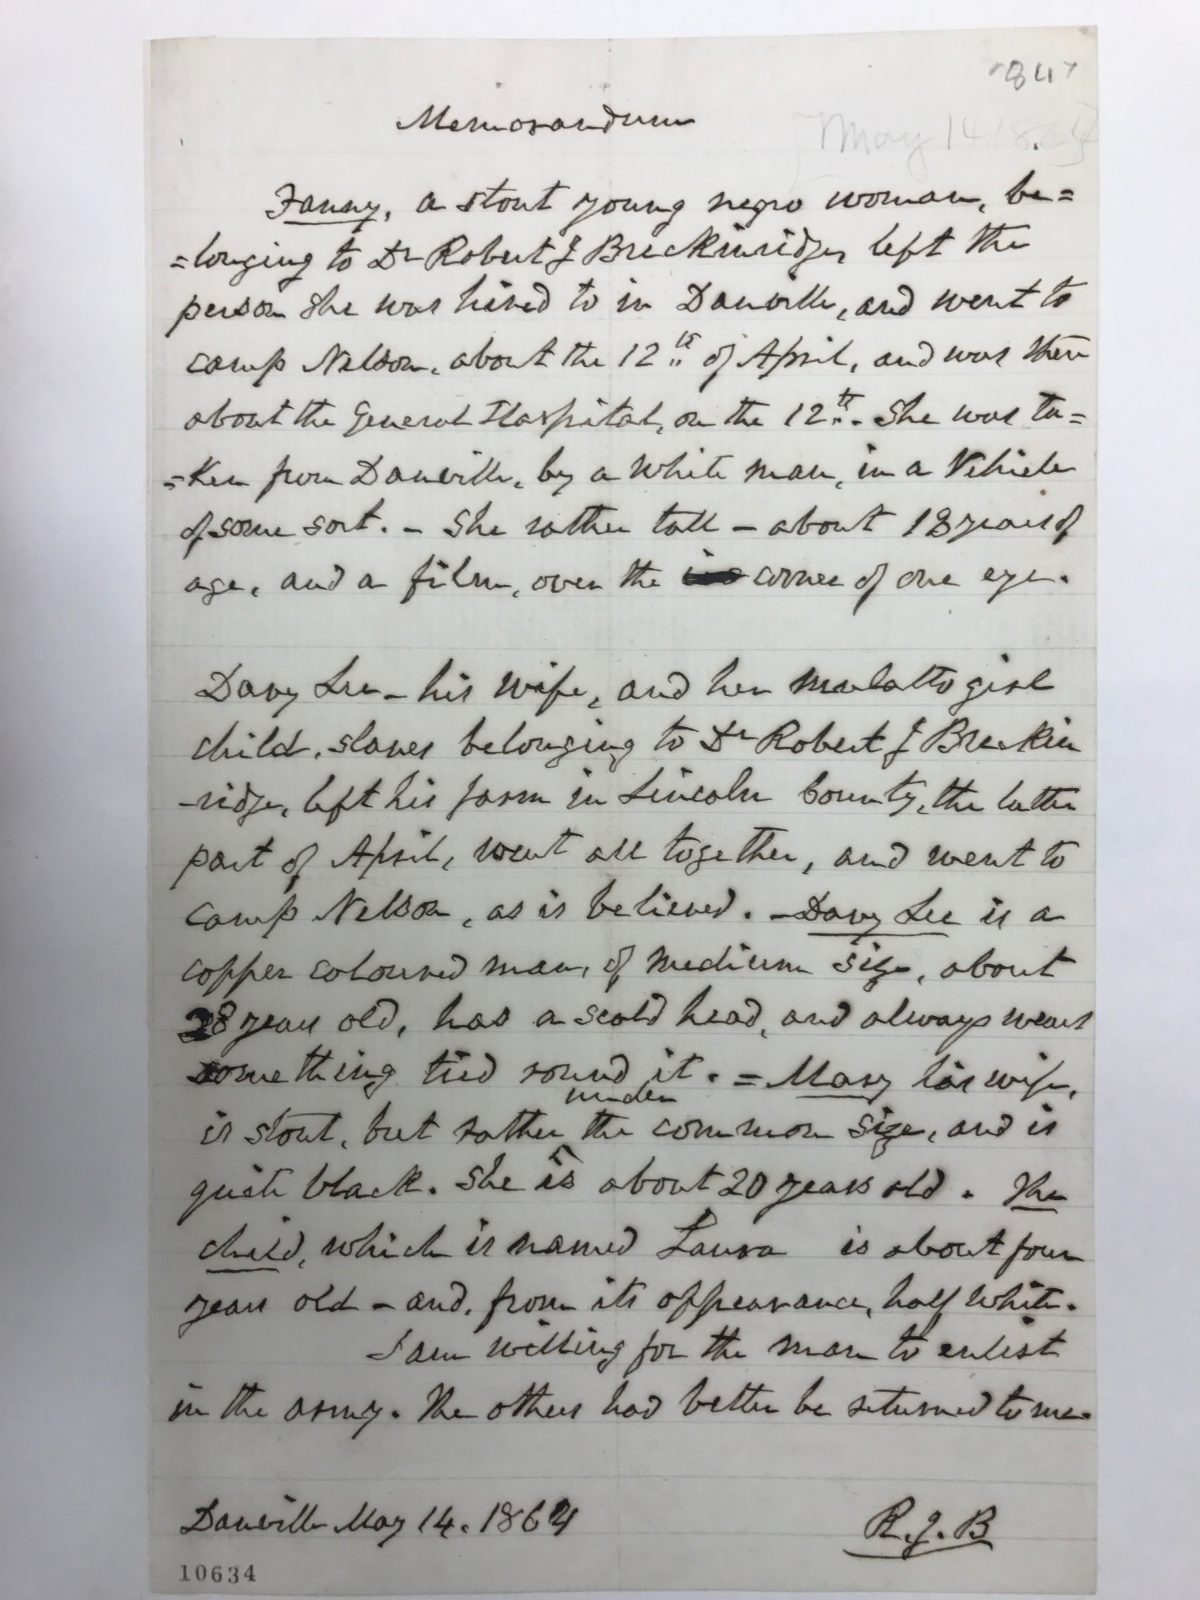 "847
Memorandum
May 14 1864
Fanny, a stout young negro woman, be=
=longing to Dr Robert J Breckinridge, left the
person she was hired to in Danville, and went to
camp Nelson, about the 12th of April, and was then
about the General Hospital, on the 12th. She was ta=
=ken from Danville, by a white man, in a Vehicle
of some sort. - She rather tall - about 18 years of
age, and a film, over the corner of one eye.
Davy Lee - his wife, and her mulatto girl
child, slaves belonging to Dr Robert J Breckin
-ridge, left his farm in Lincoln County, the latter
part of April, went all together, and went to
camp Nelson, as is believed. - Davy Lee is a
copper coloured man, of medium size, about
28 years old, has a scald head, and always wears
something tied round it. = Mary his wife,
under
is stout, but rather the common size, and is
quite black. She is about 20 years old. The
child, which is named Laura is about four
years old - and, from its appearance, half white.
I am willing for the man to enlist
in the army. The others had better be returned to me.
Danville May 14. 1864
R.J.B
10634